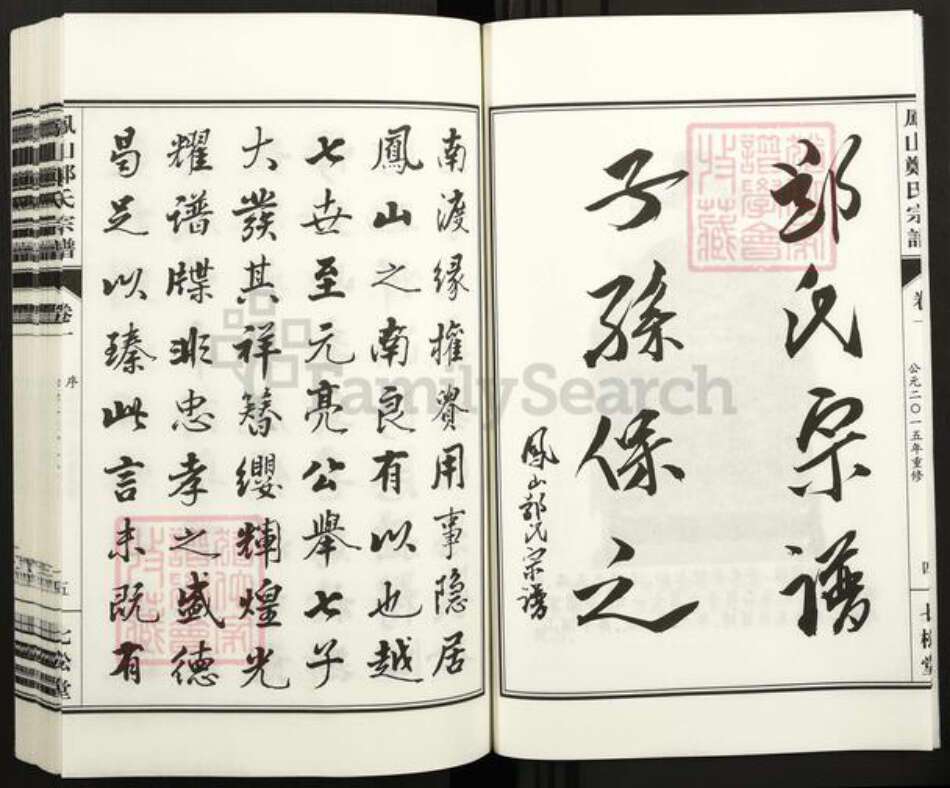 鳳山鄭氏宗譜
卷一
公元二〇一五年重修
四
七松堂
郑氏宗谱
子孫保之
鳳山郑氏宗谱
南渡缘権貴用事隐居
鳳山之南良有以也越
七世至元亮公舉七子
大發其祥簪纓輝煌光
耀谱牒非忠孝之盛德
曷足以臻此言未既有
鳳山鄭氏宗譜
卷一
序
五
七松堂
FamilySearch